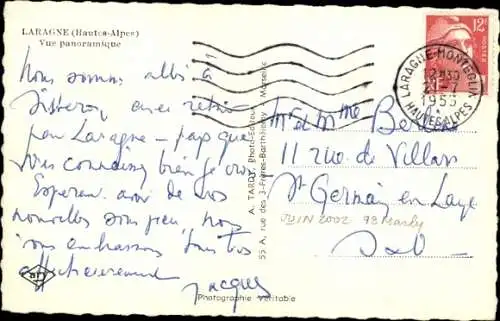 LARAGNE (Hautes-Alpes)
Vue panoramique
Nous sommes allés à
Sisteron avec retour
par Laragne - pays que
vous connaissez bien je crois
Espérant avoir de vos
nouvelles sous peu, nous
vous embrassons tous très
affectueusement
Jacques
Photographie véritable
A. TARDY, Photo-Editeur
55 A, rue des 3-Frères-Barthélemy - Marseille
12F
POSTES
LARAGNE-MONTEGLIN
12H30
21-7
1953
HAUTES-ALPES
Mr et Mme
11 rue de Villars
St Germain en Laye
JUIN 2002 78 Marly
S & O